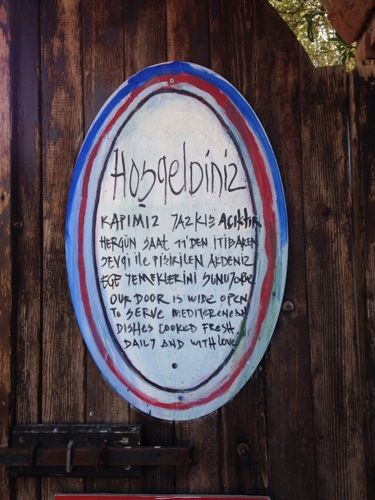 Hoşgeldiniz
KAPIMIZ YAZKIŞ AÇIKTIR
HERGÜN SAAT 11'DEN ITIBAREN
SEVGI ile PIŞIRILEN AKDENIZ
EGE YEMEKLERINI SUNUYORUZ
OUR DOOR IS WIDE OPEN
TO SERVE MEDITERENEAN
DISHES COOKED FRESH
DAILY AND WITH LOVE